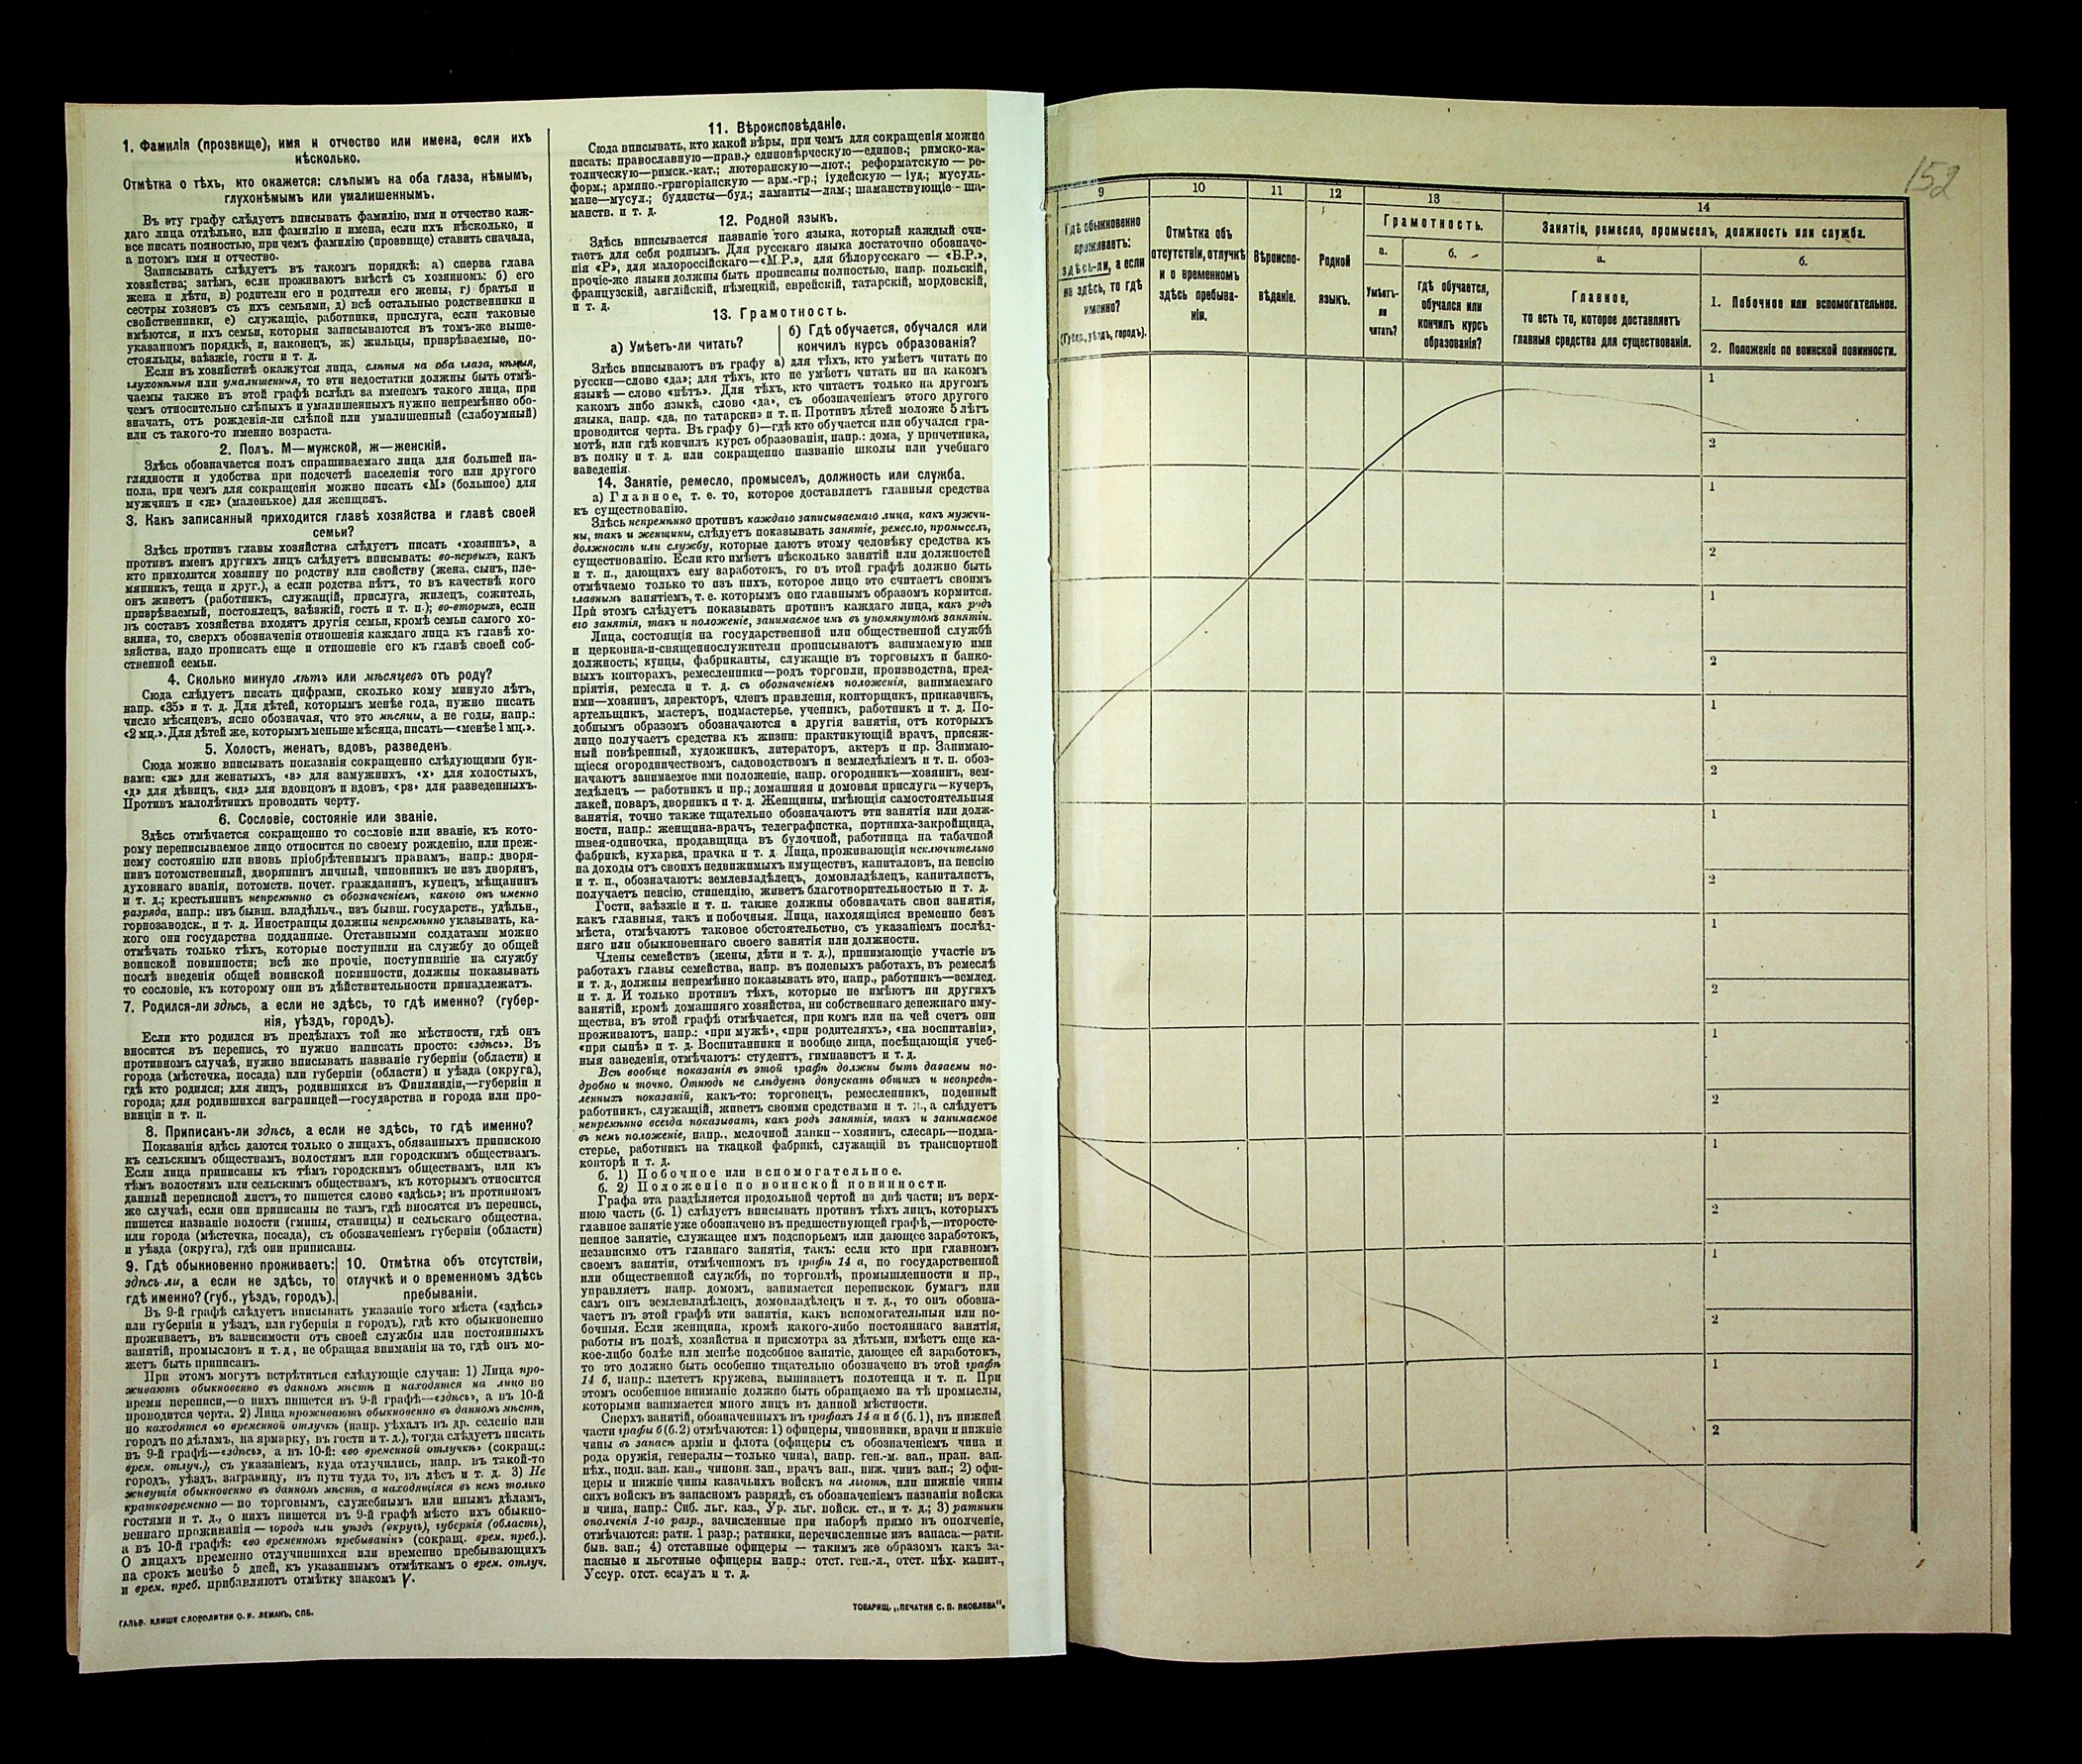 1. Фамилія (прозвище), имя и отчество или имена, если ихъ
нѣсколько.
Отмѣтка о тѣхъ, кто окажется: слѣпымъ на оба глаза, нѣмымъ,
глухонѣмымъ или умалишеннымъ.
Въ эту графу слѣдуетъ вписывать фамилію, имя и отчество каж-
даго лица отдѣльно, или фамилію и имена, если ихъ нѣсколько, и
все писать полностью, при чемъ фамилію (прозвище) ставить сначала,
а потомъ имя и отчество.
Записывать слѣдуетъ въ такомъ порядкѣ: а) сперва глава
хозяйства; затѣмъ, если проживаютъ вмѣстѣ съ хозяиномъ: б) его
жена и дѣти, в) родители его и родители его жены, г) братья и
сестры хозяевъ съ ихъ семьями, д) всѣ остальные родственники и
свойственники, е) служащіе, работники, прислуга, если таковые
имѣются, и ихъ семьи, которыя записываются въ томъ-же выше-
указанномъ порядкѣ, и, наконецъ, ж) жильцы, призрѣваемые, по-
стояльцы, заѣзжіе, гости и т. д.
Если въ хозяйствѣ окажутся лица, слѣпыя на оба глаза, нѣмыя,
глухонѣмыя или умалишенныя, то эти недостатки должны быть отмѣ-
чаемы также въ этой графѣ вслѣдъ за именемъ такого лица, при
чемъ относительно слѣпыхъ и умалишенныхъ нужно непремѣнно обо-
значать, отъ рожденія-ли слѣпой или умалишенный (слабоумный)
или съ такого-то именно возраста.
2. Полъ. М—мужской, ж—женскій.
Здѣсь обозначается полъ спрашиваемаго лица для большей на-
глядности и удобства при подсчетѣ населенія того или другого
пола, при чемъ для сокращенія можно писать «М» (большое) для
мужчинъ и «ж» (маленькое) для женщинъ.
3. Какъ записанный приходится главѣ хозяйства и главѣ своей
семьи?
Здѣсь противъ главы хозяйства слѣдуетъ писать «хозяинъ», а
противъ именъ другихъ лицъ слѣдуетъ вписывать: во-первыхъ, какъ
кто приходится хозяину по родству или свойству (жена, сынъ, пле-
мянникъ, теща и друг.), а если родства нѣтъ, то въ качествѣ кого
онъ живетъ (работникъ, служащій, прислуга, жилецъ, сожитель,
призрѣваемый, постоялецъ, заѣзжій, гость и т. п.); во-вторыхъ, если
въ составъ хозяйства входятъ другія семьи, кромѣ семьи самого хо-
зяина, то, сверхъ обозначенія отношенія каждаго лица къ главѣ хо-
зяйства, надо прописать еще и отношеніе его къ главѣ своей соб-
ственной семьи.
4. Сколько минуло лѣтъ или мѣсяцевъ отъ роду?
Сюда слѣдуетъ писать цифрами, сколько кому минуло лѣтъ,
напр. «35» и т. д. Для дѣтей, которымъ менѣе года, нужно писать
число мѣсяцевъ, ясно обозначая, что это мѣсяцы, а не годы, напр.:
«2 мц.». Для дѣтей же, которымъ меньше мѣсяца, писать—«менѣе 1 мц.».
5. Холостъ, женатъ, вдовъ, разведенъ.
Сюда можно вписывать показанія сокращенно слѣдующими бук-
вами: «ж» для женатыхъ, «з» для замужнихъ, «х» для холостыхъ,
«д» для дѣвицъ, «вд» для вдовцовъ и вдовъ, «рз» для разведенныхъ.
Противъ малолѣтнихъ проводить черту.
6. Сословіе, состояніе или званіе.
Здѣсь отмѣчается сокращенно то сословіе или званіе, къ кото-
рому переписываемое лицо относится по своему рожденію, или преж-
нему состоянію или вновь пріобрѣтеннымъ правамъ, напр.: дворя-
нинъ потомственный, дворянинъ личный, чиновникъ не изъ дворянъ,
духовнаго званія, потомств. почет. гражданинъ, купецъ, мѣщанинъ
и т. д.; крестьянинъ непремѣнно съ обозначеніемъ, какого онъ именно
разряда, напр.: изъ бывш. владѣльч., изъ бывш. государств., удѣльн.,
горнозаводск., и т. д. Иностранцы должны непремѣнно указывать, ка-
кого они государства подданные. Отставными солдатами можно
отмѣчать только тѣхъ, которые поступили на службу до общей
воинской повинности; всѣ же прочіе, поступившіе на службу
послѣ введенія общей воинской повинности, должны показывать
то сословіе, къ которому они въ дѣйствительности принадлежатъ.
7. Родился-ли здѣсь, а если не здѣсь, то гдѣ именно? (губер-
нія, уѣздъ, городъ).
Если кто родился въ предѣлахъ той же мѣстности, гдѣ онъ
вносится въ перепись, то нужно написать просто: «здѣсь». Въ
противномъ случаѣ, нужно вписывать названіе губерніи (области) и
города (мѣстечка, посада) или губерніи (области) и уѣзда (округа),
гдѣ кто родился; для лицъ, родившихся въ Финляндіи,—губерніи и
города; для родившихся заграницей—государства и города или про-
винціи и т. п.
8. Приписанъ-ли здѣсь, а если не здѣсь, то гдѣ именно?
Показанія здѣсь даются только о лицахъ, обязанныхъ припискою
къ сельскимъ обществамъ, волостямъ или городскимъ обществамъ.
Если лица приписаны къ тѣмъ городскимъ обществамъ, или къ
тѣмъ волостямъ или сельскимъ обществамъ, къ которымъ относится
данный переписной листъ, то пишется слово «здѣсь»; въ противномъ
же случаѣ, если они приписаны не тамъ, гдѣ вносятся въ перепись,
пишется названіе волости (гмины, станицы) и сельскаго общества,
или города (мѣстечка, посада), съ обозначеніемъ губерніи (области)
и уѣзда (округа), гдѣ они приписаны.
9. Гдѣ обыкновенно проживаетъ:
здѣсь-ли, а если не здѣсь, то
гдѣ именно? (губ., уѣздъ, городъ).
10. Отмѣтка объ отсутствіи,
отлучкѣ и о временномъ здѣсь
пребываніи.
Въ 9-й графѣ слѣдуетъ вписывать указаніе того мѣста («здѣсь»
или губернія и уѣздъ, или губернія и городъ), гдѣ кто обыкновенно
проживаетъ, въ зависимости отъ своей службы или постоянныхъ
занятій, промысловъ и т. д., не обращая вниманія на то, гдѣ онъ мо-
жетъ быть приписанъ.
При этомъ могутъ встрѣтиться слѣдующіе случаи: 1) Лица про-
живаютъ обыкновенно въ данномъ мѣстѣ и находятся на лицо во
время переписи,—о нихъ пишется въ 9-й графѣ—«здѣсь», а въ 10-й
проводится черта. 2) Лица проживаютъ обыкновенно въ данномъ мѣстѣ,
но находятся во временной отлучкѣ (напр. уѣхалъ въ др. селеніе или
городъ по дѣламъ, на ярмарку, въ гости и т. д.), тогда слѣдуетъ писать
въ 9-й графѣ—«здѣсь», а въ 10-й: «во временной отлучкѣ» (сокращ.:
врем. отлуч.), съ указаніемъ, куда отлучились, напр. въ такой-то
городъ, уѣздъ, заграницу, въ пути туда то, въ лѣсъ и т. д. 3) Не
живущія обыкновенно въ данномъ мѣстѣ, а находящіяся въ немъ только
кратковременно — по торговымъ, служебнымъ или инымъ дѣламъ,
гостями и т. д., о нихъ пишется въ 9-й графѣ мѣсто ихъ обыкно-
веннаго проживанія — городъ или уѣздъ (округъ), губернія (область),
а въ 10-й графѣ: «во временномъ пребываніи» (сокращ. врем. преб.).
О лицахъ временно отлучившихся или временно пребывающихъ
на срокъ менѣе 5 дней, къ указаннымъ отмѣткамъ о врем. отлуч.
и врем. преб. прибавляютъ отмѣтку знакомъ V.
ГАЛЬВ. КЛИШЕ СЛОВОЛИТНИ О. И. ЛЕМАНЪ, СПБ.
11. Вѣроисповѣданіе.
Сюда вписывать, кто какой вѣры, при чемъ для сокращенія можно
писать: православную—прав.; единовѣрческую—единов.; римско-ка-
толическую—римск.-кат.; лютеранскую—лют.; реформатскую — ре-
форм.; армяно.-григоріанскую — арм.-гр.; іудейскую — іуд.; мусуль-
мане—мусул.; буддисты—буд.; ламаиты—лам.; шаманствующіе - ша-
манств. и т. д.
12. Родной языкъ.
Здѣсь вписывается названіе того языка, который каждый счи-
таетъ для себя роднымъ. Для русскаго языка достаточно обозначе-
нія «Р», для малороссійскаго—«М.Р.», для бѣлорусскаго — «Б.Р.»,
прочіе-же языки должны быть прописаны полностью, напр. польскій,
французскій, англійскій, нѣмецкій, еврейскій, татарскій, мордовскій,
и т. д.
13. Грамотность.
а) Умѣетъ-ли читать?
б) Гдѣ обучается, обучался или
кончилъ курсъ образованія?
Здѣсь вписываютъ въ графу а) для тѣхъ, кто умѣетъ читать по
русски—слово «да»; для тѣхъ, кто не умѣетъ читать ни на какомъ
языкѣ — слово «нѣтъ». Для тѣхъ, кто читаетъ только на другомъ
какомъ либо языкѣ, слово «да», съ обозначеніемъ этого другого
языка, напр. «да, по татарски» и т. п. Противъ дѣтей моложе 5 лѣтъ
проводится черта. Въ графу б)—гдѣ кто обучается или обучался гра-
мотѣ, или гдѣ кончилъ курсъ образованія, напр.: дома, у причетника,
въ полку и т. д. или сокращенно названіе школы или учебнаго
заведенія.
14. Занятіе, ремесло, промыселъ, должность или служба.
а) Главное, т. е. то, которое доставляетъ главныя средства
къ существованію.
Здѣсь непремѣнно противъ каждаго записываемаго лица, какъ мужчи-
ны, такъ и женщины, слѣдуетъ показывать занятіе, ремесло, промыселъ,
должность или службу, которые даютъ этому человѣку средства къ
существованію. Если кто имѣетъ нѣсколько занятій или должностей
и т. п., дающихъ ему заработокъ, то въ этой графѣ должно быть
отмѣчаемо только то изъ нихъ, которое лицо это считаетъ своимъ
главнымъ занятіемъ, т. е. которымъ оно главнымъ образомъ кормится.
При этомъ слѣдуетъ показывать противъ каждаго лица, какъ родъ
его занятія, такъ и положеніе, занимаемое имъ въ упомянутомъ занятіи.
Лица, состоящія на государственной или общественной службѣ
и церковно-и-священнослужители прописываютъ занимаемую ими
должность; купцы, фабриканты, служащіе въ торговыхъ и банко-
выхъ конторахъ, ремесленники—родъ торговли, производства, пред-
пріятія, ремесла и т. д. съ обозначеніемъ положенія, занимаемаго
ими—хозяинъ, директоръ, членъ правленія, конторщикъ, приказчикъ,
артельщикъ, мастеръ, подмастерье, ученикъ, работникъ и т. д. По-
добнымъ образомъ обозначаются и другія занятія, отъ которыхъ
лицо получаетъ средства къ жизни: практикующій врачъ, присяж-
ный повѣренный, художникъ, литераторъ, актеръ и пр. Занимаю-
щіеся огородничествомъ, садоводствомъ и земледѣліемъ и т. п. обоз-
начаютъ занимаемое ими положеніе, напр. огородникъ—хозяинъ, зем-
ледѣлецъ — работникъ и пр.; домашняя и домовая прислуга—кучеръ,
лакей, поваръ, дворникъ и т. д. Женщины, имѣющія самостоятельныя
занятія, точно также тщательно обозначаютъ эти занятія или долж-
ности, напр.: женщина-врачъ, телеграфистка, портниха-закройщица,
швея-одиночка, продавщица въ булочной, работница на табачной
фабрикѣ, кухарка, прачка и т. д. Лица, проживающія исключительно
на доходы отъ своихъ недвижимыхъ имуществъ, капиталовъ, на пенсію
и т. п., обозначаютъ: землевладѣлецъ, домовладѣлецъ, капиталистъ,
получаетъ пенсію, стипендію, живетъ благотворительностью и т. д.
Гости, заѣзжіе и т. п. также должны обозначать свои занятія,
какъ главныя, такъ и побочныя. Лица, находящіяся временно безъ
мѣста, отмѣчаютъ таковое обстоятельство, съ указаніемъ послѣд-
няго или обыкновеннаго своего занятія или должности.
Члены семействъ (жены, дѣти и т. д.), принимающіе участіе въ
работахъ главы семейства, напр. въ полевыхъ работахъ, въ ремеслѣ
и т. д., должны непремѣнно показывать это, напр., работникъ—землед.
и т. д. И только противъ тѣхъ, которые не имѣютъ ни другихъ
занятій, кромѣ домашняго хозяйства, ни собственнаго денежнаго иму-
щества, въ этой графѣ отмѣчается, при комъ или на чей счетъ они
проживаютъ, напр.: «при мужѣ», «при родителяхъ», «на воспитаніи»,
«при сынѣ» и т. д. Воспитанники и вообще лица, посѣщающія учеб-
ныя заведенія, отмѣчаютъ: студентъ, гимназистъ и т. д.
Всѣ вообще показанія въ этой графѣ должны быть даваемы по-
дробно и точно. Отнюдь не слѣдуетъ допускать общихъ и неопредѣ-
ленныхъ показаній, какъ-то: торговецъ, ремесленникъ, поденный
работникъ, служащій, живетъ своими средствами и т. п., а слѣдуетъ
непремѣнно всегда показывать, какъ родъ занятія, такъ и занимаемое
въ немъ положеніе, напр., мелочной лавки—хозяинъ, слесарь—подма-
стерье, работникъ на ткацкой фабрикѣ, служащій въ транспортной
конторѣ и т. д.
б. 1) Побочное или вспомогательное.
б. 2) Положеніе по воинской повинности.
Графа эта раздѣляется продольной чертой на двѣ части; въ верх-
нюю часть (б. 1) слѣдуетъ вписывать противъ тѣхъ лицъ, которыхъ
главное занятіе уже обозначено въ предшествующей графѣ,—второсте-
пенное занятіе, служащее имъ подспорьемъ или дающее заработокъ,
независимо отъ главнаго занятія, такъ: если кто при главномъ
своемъ занятіи, отмѣченномъ въ графѣ 14 а, по государственной
или общественной службѣ, по торговлѣ, промышленности и пр.,
управляетъ напр. домомъ, занимается перепискою бумагъ или
самъ онъ землевладѣлецъ, домовладѣлецъ и т. д., то онъ обозна-
чаетъ въ этой графѣ эти занятія, какъ вспомогательныя или по-
бочныя. Если женщина, кромѣ какого-либо постояннаго занятія,
работы въ полѣ, хозяйства и присмотра за дѣтьми, имѣетъ еще ка-
кое-либо болѣе или менѣе подсобное занятіе, дающее ей заработокъ,
то это должно быть особенно тщательно обозначено въ этой графѣ
14 б, напр.: плететъ кружева, вышиваетъ полотенца и т. п. При
этомъ особенное вниманіе должно быть обращаемо на тѣ промыслы,
которыми занимается много лицъ въ данной мѣстности.
Сверхъ занятій, обозначенныхъ въ графахъ 14 а и б (б. 1), въ нижней
части графы б (б. 2) отмѣчаются: 1) офицеры, чиновники, врачи и нижніе
чины въ запасѣ арміи и флота (офицеры съ обозначеніемъ чина и
рода оружія, генералы—только чина), напр. ген.-м. зап., прап. зап.
пѣх., подп. зап. кав., чиновн. зап., врачъ зап., ниж. чинъ зап.; 2) офи-
церы и нижніе чины казачьихъ войскъ на льготѣ, или нижніе чины
сихъ войскъ въ запасномъ разрядѣ, съ обозначеніемъ названія войска
и чина, напр.: Сиб. льг. каз., Ур. льг. войск. ст., и т. д.; 3) ратники
ополченія 1-го разр., зачисленные при наборѣ прямо въ ополченіе,
отмѣчаются: ратн. 1 разр.; ратники, перечисленные изъ запаса:—ратн.
быв. зап.; 4) отставные офицеры — такимъ же образомъ какъ за-
пасные и льготные офицеры напр.: отст. ген.-л., отст. пѣх. капит.,
Уссур. отст. есаулъ и т. д.
ТОВАРИЩ. „ПЕЧАТНЯ С. П. ЯКОВЛЕВА“.
152
9
10
11
12
13
14
Гдѣ обыкновенно
проживаетъ:
здѣсь-ли, а если
не здѣсь, то гдѣ
именно?
(Губер., уѣздъ, городъ).
Отмѣтка объ
отсутствіи, отлучкѣ
и о временномъ
здѣсь пребыва-
ніи.
Вѣроиспо-
вѣданіе.
Родной
языкъ.
Грамотность.
а.
Умѣетъ-
ли
читать?
б.
гдѣ обучается,
обучался или
кончилъ курсъ
образованія?
Занятіе, ремесло, промыселъ, должность или служба.
а.
Главное,
то есть то, которое доставляетъ
главныя средства для существованія.
б.
1. Побочное или вспомогательное.
2. Положеніе по воинской повинности.
1
2
1
2
1
2
1
2
1
2
1
2
1
2
1
2
1
2
1
2